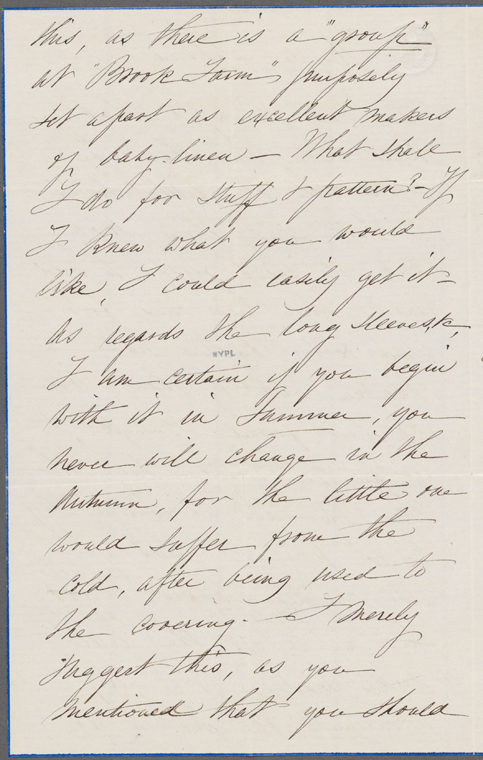 this, as there is a "group"
at "Brook Farm" purposely
set apart as excellent makers
of baby-linen — What shall
I do for stuff & pattern? — If
I knew what you would
like, I could easily get it —
as regards the long sleeves, &c,
NYPL
I am certain if you begin
with it in Summer, you
never will change in the
Autumn, for the little one
would suffer from the
cold, after being used to
the covering. — I merely
suggest this, as you
mentioned that you should